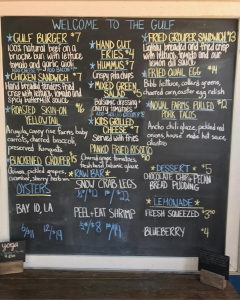 WELCOME TO THE GULF
GULF BURGER $7
100% natural beef on a
brioche bun with lettuce
tomato and onion
CHICKEN SANDWICH $7
Hand breaded tenders fried
crisp with lettuce, tomato and
spicy buttermilk sauce
ROASTED SKIN-ON
YELLOWTAIL
Arugula, curry rice farms, baby
carrots, charred broccoli,
preserved
BLACKENED GROUPER
Quinoa, pickled grapes,
cucumber, sherry herb vin.
OYSTERS
BAY 10, LA
5/$11 12/$19
HAND CUT
FRIES
HUMMUS $7
Crispy pita chips
MIXED GREEN
SALAD
Balsamic dressing
cherry tomatoes
KIDS GRILLED
CHEESE
Served with fries
PANKO FRIED RISOTTO
RAW BAR
SNOW CRAB LEGS
PEEL + EAT SHRIMP
FRIED GROUPER SANDWICH $13
Lightly breaded and fried crisp
with lettuce, tomato and our
lemon aioli sauce
FRIED QUAIL EGG $4
Bibb lettuce, collard greens,
NIMAL FARMS PULLED $12
PORK TACOS
Ancho chili glaze, pickled red
onions, house made hot sauce
cilantro
DESSERT $5
CHOCOLATE CHIP + PECAN
BREAD PUDDING
LEMONADE
FRESH SQUEEZED $3.50
BLUEBERRY $4
yoga